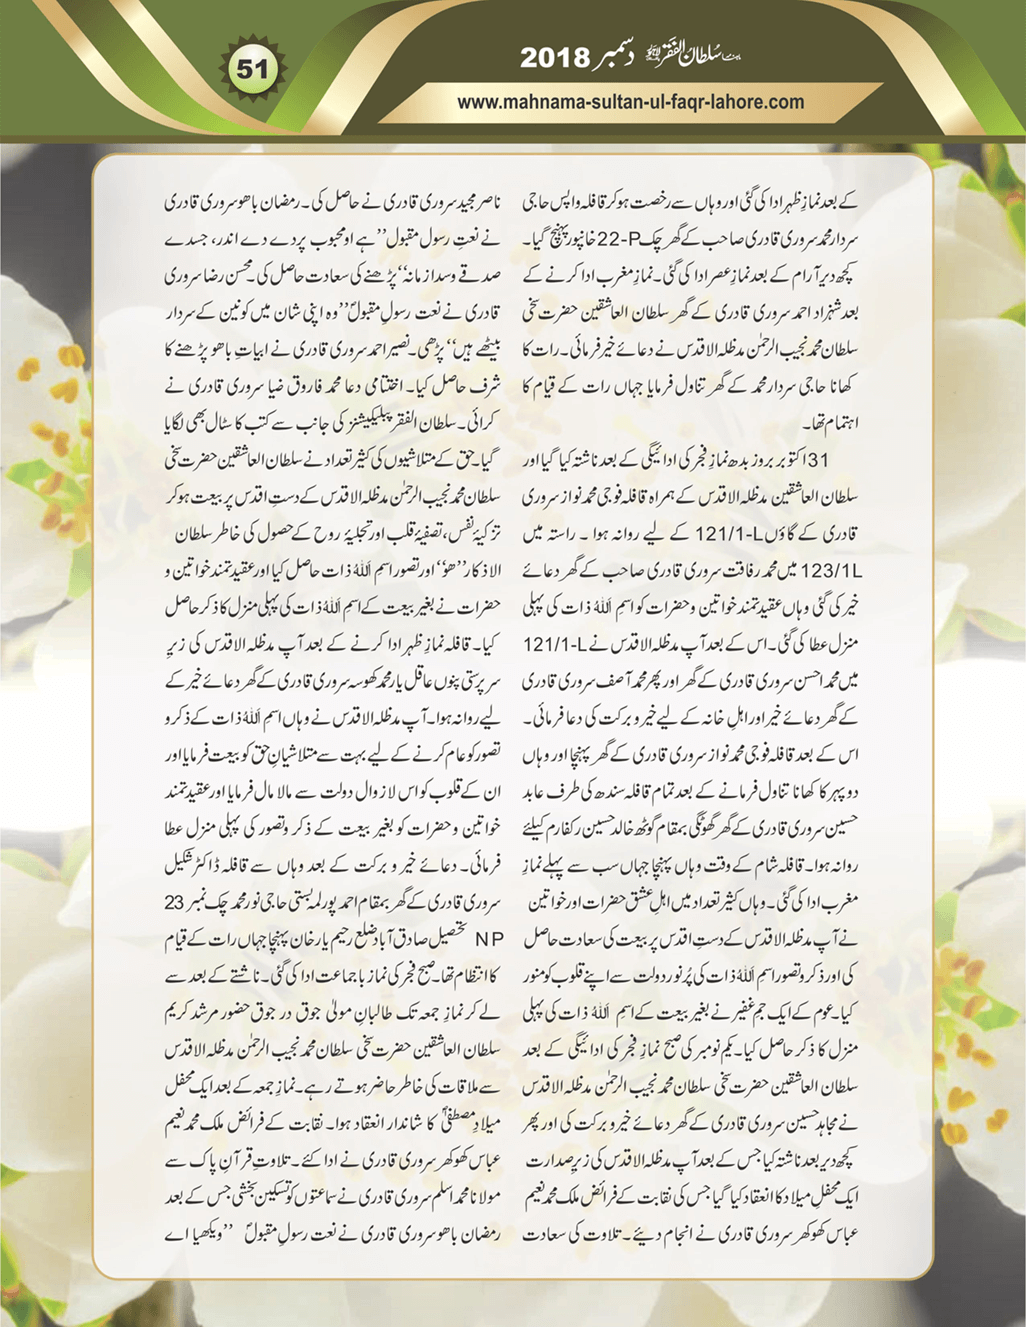 51
ماہنامہ سلطان الفقر لاہور دسمبر 2018
www.mahnama-sultan-ul-faqr-lahore.com
کے بعد نمازِ ظہر ادا کی گئی اور وہاں سے رخصت ہو کر قافلہ واپس حاجی
سردار محمد سروری قادری صاحب کے گھر چک 22-P خانپور پہنچ گیا۔
کچھ دیر آرام کے بعد نمازِ عصر ادا کی گئی۔ نمازِ مغرب ادا کرنے کے
بعد شہزاد احمد سروری قادری کے گھر سلطان العاشقین حضرت سخی
سلطان محمد نجیب الرحمٰن مدظلہ الاقدس نے دعائے خیر فرمائی۔ رات کا
کھانا حاجی سردار محمد کے گھر تناول فرمایا جہاں رات کے قیام کا
اہتمام تھا۔
31 اکتوبر بروز بدھ نمازِ فجر کی ادائیگی کے بعد ناشتہ کیا گیا اور
سلطان العاشقین مدظلہ الاقدس کے ہمراہ قافلہ فوجی محمد نواز سروری
قادری کے گاؤں 121/1-L کے لیے روانہ ہوا ۔ راستہ میں
123/1L میں محمد رفاقت سروری قادری صاحب کے گھر دعائے
خیر کی گئی وہاں عقیدتمند خواتین و حضرات کو اسمِ اللہ ذات کی پہلی
منزل عطا کی گئی۔ اس کے بعد آپ مدظلہ الاقدس نے 121/1-L
میں محمد احسن سروری قادری کے گھر اور پھر محمد آصف سروری قادری
کے گھر دعائے خیر اور اہلِ خانہ کے لیے خیر و برکت کی دعا فرمائی۔
اس کے بعد قافلہ فوجی محمد نواز سروری قادری کے گھر پہنچا اور وہاں
دوپہر کا کھانا تناول فرمانے کے بعد تمام قافلہ سندھ کی طرف عابد
حسین سروری قادری کے گھر گھوٹکی بمقام گوٹھ خالد حسین رکفارم کیلئے
روانہ ہوا۔ قافلہ شام کے وقت وہاں پہنچا جہاں سب سے پہلے نمازِ
مغرب ادا کی گئی۔ وہاں کثیر تعداد میں اہلِ عشق حضرات اور خواتین
نے آپ مدظلہ الاقدس کے دستِ اقدس پر بیعت کی سعادت حاصل
کی اور ذکر و تصور اسمِ اللہ ذات کی پُرنور دولت سے اپنے قلوب کو منور
کیا۔ عوم کے ایک جمِ غفیر نے بغیر بیعت کے اسمِ اللہ ذات کی پہلی
منزل کا ذکر حاصل کیا۔ یکم نومبر کی صبح نمازِ فجر کی ادائیگی کے بعد
سلطان العاشقین حضرت سخی سلطان محمد نجیب الرحمٰن مدظلہ الاقدس
نے مجاہد حسین سروری قادری کے گھر دعائے خیر و برکت کی اور پھر
کچھ دیر بعد ناشتہ کیا جس کے بعد آپ مدظلہ الاقدس کی زیرِ صدارت
ایک محفلِ میلاد کا انعقاد کیا گیا جس کی نقابت کے فرائض ملک محمد نعیم
عباس کھوکھر سروری قادری نے انجام دیئے۔ تلاوت کی سعادت
ناصر مجید سروری قادری نے حاصل کی۔ رمضان باھو سروری قادری
نے نعتِ رسول مقبول ’’ہے او محبوب پردے دے اندر، جسدے
صدقے وسدا زمانہ‘‘ پڑھنے کی سعادت حاصل کی۔ محسن رضا سروری
قادری نے نعت رسولِ مقبولؐ ’’وہ اپنی شان میں کونین کے سردار
بیٹھے ہیں‘‘ پڑھی۔ نصیر احمد سروری قادری نے ابیاتِ باھو پڑھنے کا
شرف حاصل کیا۔ اختتامی دعا محمد فاروق ضیا سروری قادری نے
کرائی۔ سلطان الفقر پبلیکیشنز کی جانب سے کتب کا سٹال بھی لگایا
گیا۔ حق کے متلاشیوں کی کثیر تعداد نے سلطان العاشقین حضرت سخی
سلطان محمد نجیب الرحمٰن مدظلہ الاقدس کے دستِ اقدس پر بیعت ہو کر
تزکیۂ نفس، تصفیۂ قلب اور تجلیۂ روح کے حصول کی خاطر سلطان
الاذکار ’’ھو‘‘ اور تصور اسمِ اللہ ذات حاصل کیا اور عقیدتمند خواتین و
حضرات نے بغیر بیعت کے اسمِ اللہ ذات کی پہلی منزل کا ذکر حاصل
کیا۔ قافلہ نمازِ ظہر ادا کرنے کے بعد آپ مدظلہ الاقدس کی زیرِ
سرپرستی پنوں عاقل یار محمد کھوسہ سروری قادری کے گھر دعائے خیر کے
لیے روانہ ہوا۔ آپ مدظلہ الاقدس نے وہاں اسمِ اللہ ذات کے ذکر و
تصور کو عام کرنے کے لیے بہت سے متلاشیانِ حق کو بیعت فرمایا اور
ان کے قلوب کو اس لازوال دولت سے مالا مال فرمایا اور عقیدتمند
خواتین و حضرات کو بغیر بیعت کے ذکر و تصور کی پہلی منزل عطا
فرمائی۔ دعائے خیر و برکت کے بعد وہاں سے قافلہ ڈاکٹر شکیل
سروری قادری کے گھر بمقام احمد پور لمہ بستی حاجی نور محمد چک نمبر 23
NP تحصیل صادق آباد ضلع رحیم یار خان پہنچا جہاں رات کے قیام
کا انتظام تھا۔ صبح فجر کی نماز باجماعت ادا کی گئی۔ ناشتے کے بعد سے
لے کر نمازِ جمعہ تک طالبانِ مولیٰ جوق در جوق حضور مرشد کریم
سلطان العاشقین حضرت سخی سلطان محمد نجیب الرحمٰن مدظلہ الاقدس
سے ملاقات کی خاطر حاضر ہوتے رہے۔ نمازِ جمعہ کے بعد ایک محفل
میلادِ مصطفیٰؐ کا شاندار انعقاد ہوا۔ نقابت کے فرائض ملک محمد نعیم
عباس کھوکھر سروری قادری نے ادا کئے۔ تلاوتِ قرآنِ پاک سے
مولانا محمد اسلم سروری قادری نے سماعتوں کو تسکین بخشی جس کے بعد
رمضان باھو سروری قادری نے نعت رسولِ مقبولؐ ’’ویکھیا اے